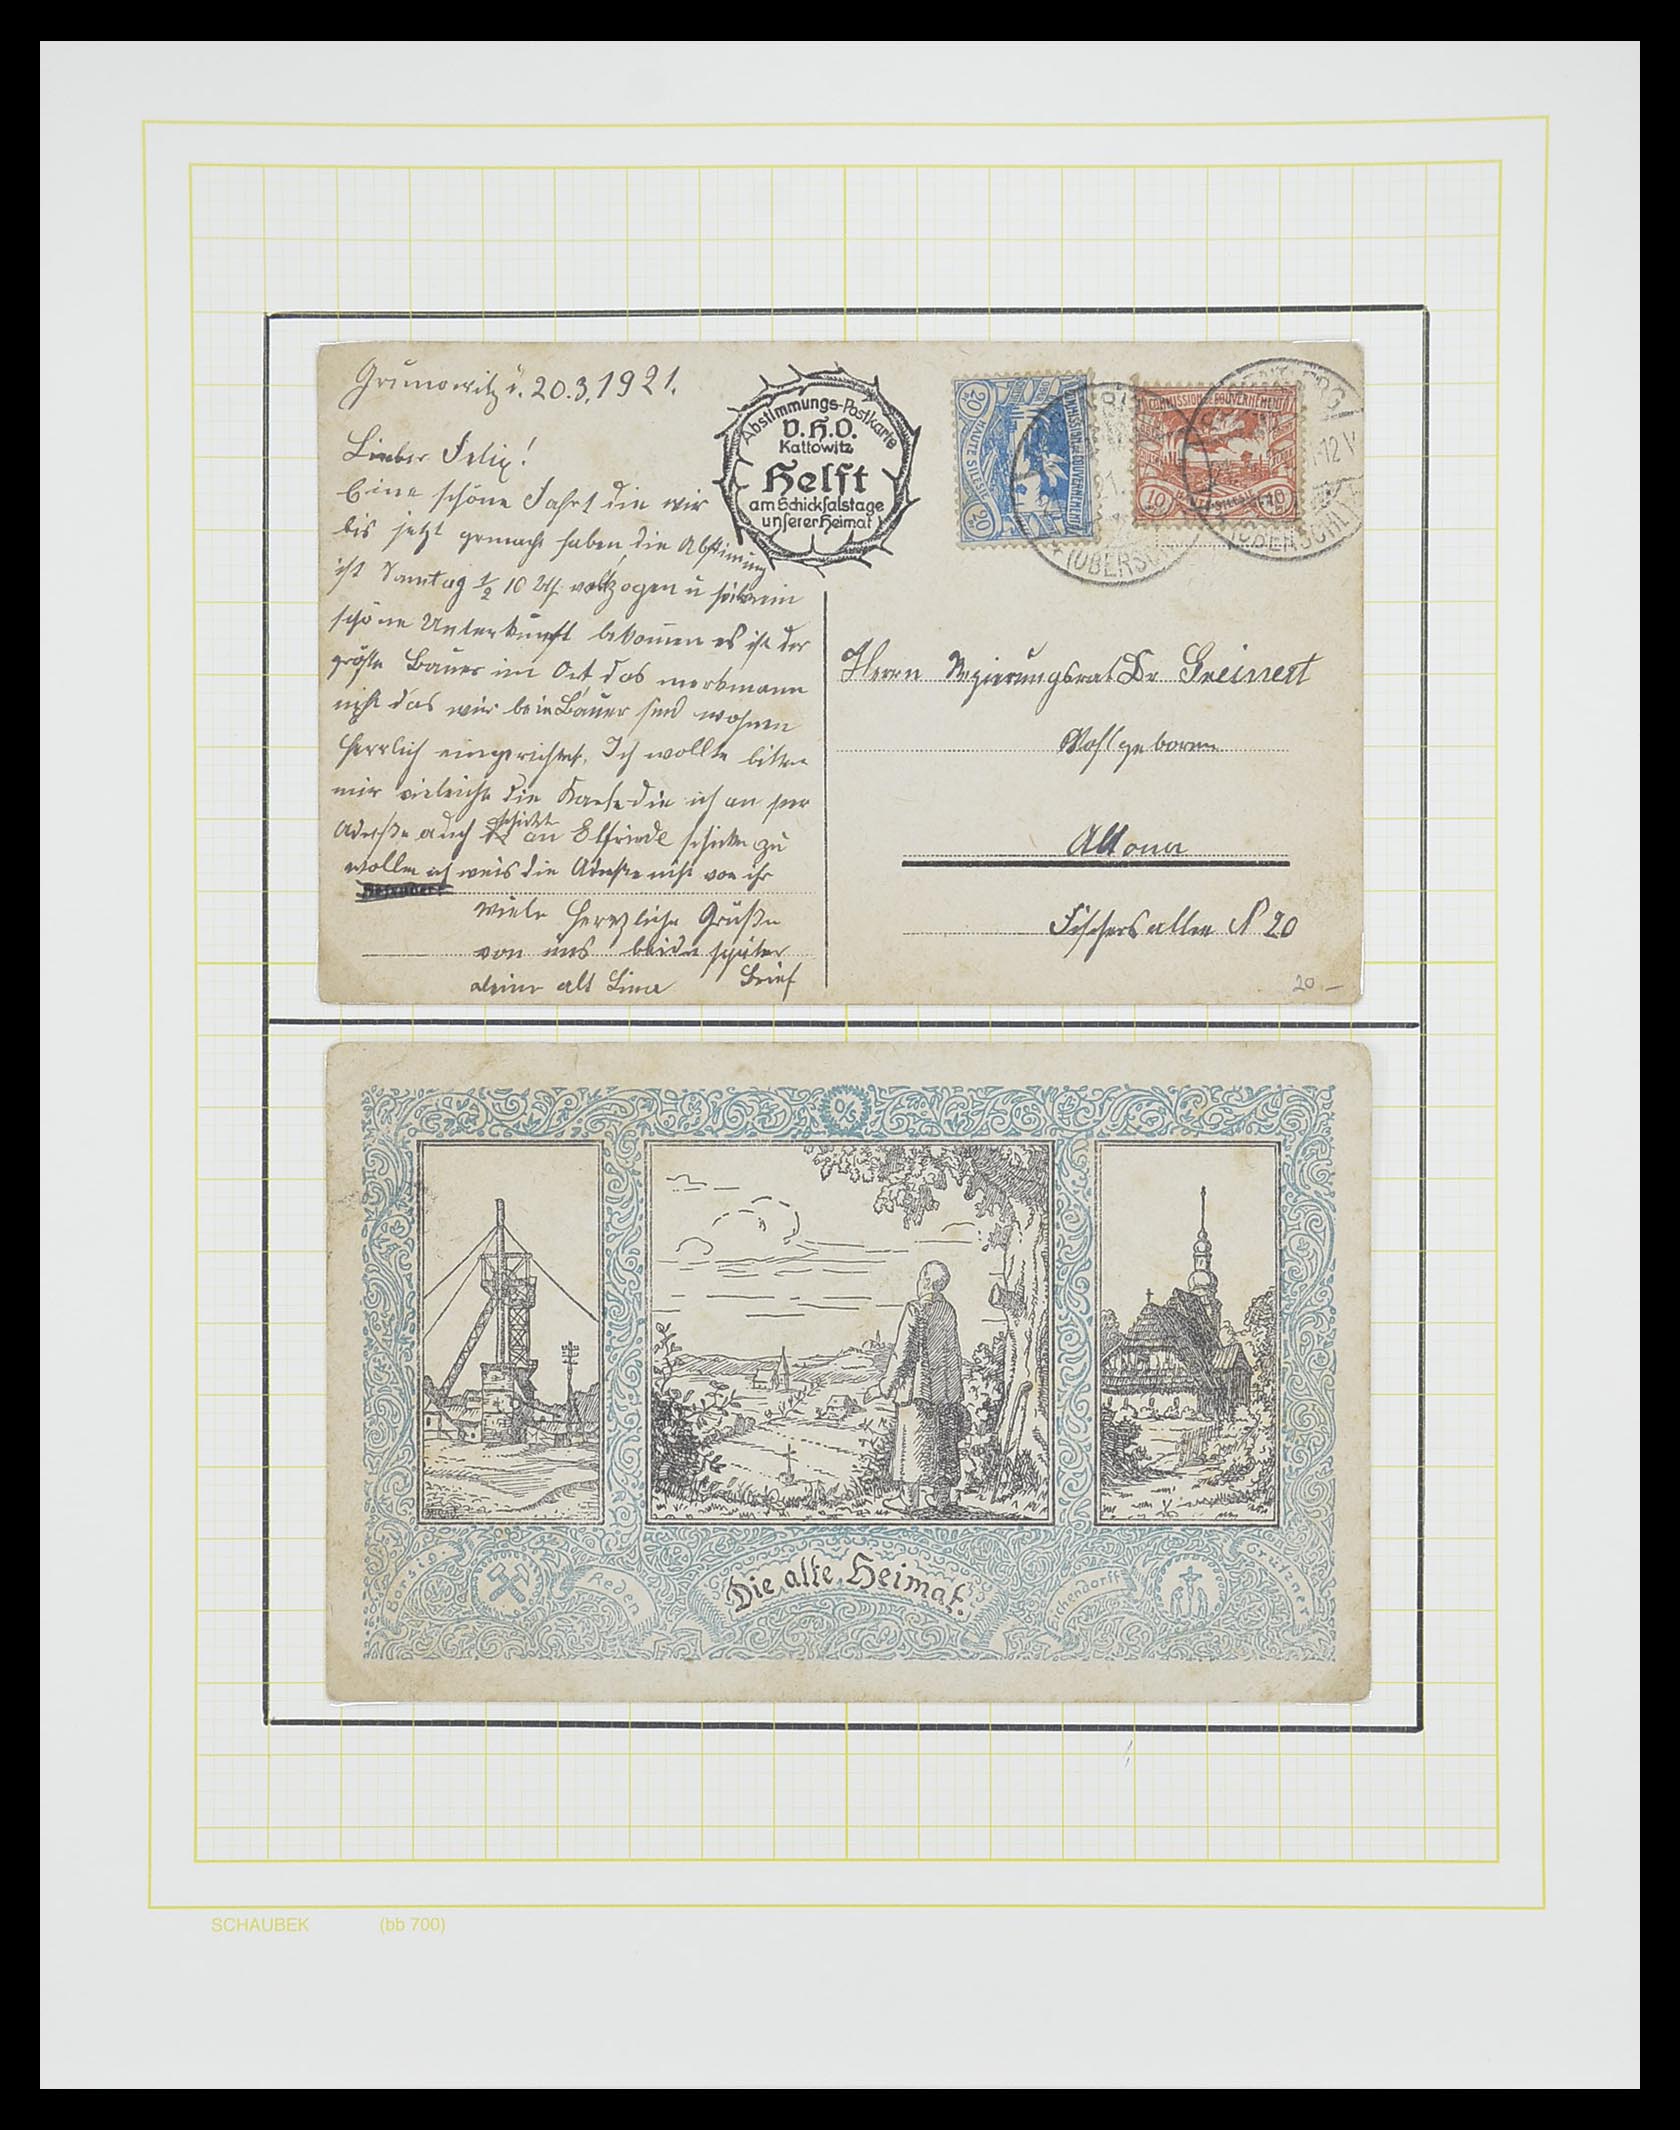 Grunowitz d. 20.3.1921.
Lieber Felix!
Eine schöne Fahrt die wir
bis jetzt gemacht haben, die Abstimmung
ist Sonntag ½ 10 Uhr vollzogen u
schöne Unterkunft bekommen es ist der
größte Bauer im Ort das merkt mann
nicht das wir bein Bauer sind wohnen
herrlich eingerichtet. Ich wollte bitten
mir vieleicht die Karte die ich an
Adreße auch an Elfriede schicken zu
wollen ich weis die Adreße nicht von ihr
viele herzliche Grüße
von uns beide später
deine alt Lina Brief
Abstimmungs-Postkarte
V.H.O.
Kattowitz
Helft
am Schicksalstage
unserer Heimat
20 COMMISSION DE GOUVERNEMENT
HAUTE SILESIE 20
COMMISSION DE GOUVERNEMENT
10 HAUTE SILESIE 10
(OBERSCHL)
12 V
(OBERSCHL)
Herrn Regierungsrat Dr Greinert
Wohlgeboren
Altona
Fischers allee N 20
20 –
O/S
Borsig
Reden
Die alte Heimat.
Eichendorff
Grützner
SCHAUBEK (bb 700)